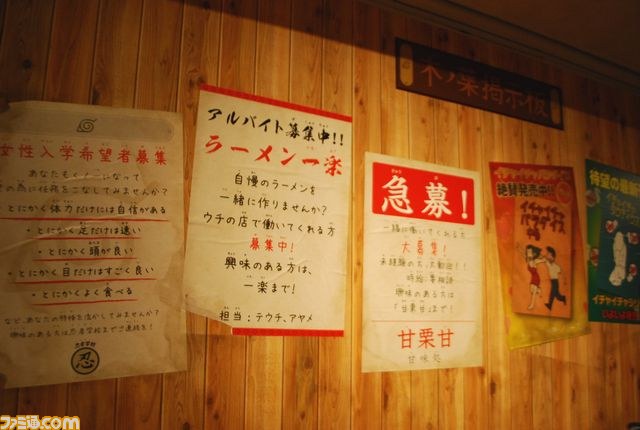 木ノ葉掲示板
女性入学希望者募集
あなたもくノ一になって
の為に任務をこなしてみませんか?
・とにかく体力だけには自信がある
・とにかく足だけは速い
・とにかく頭が良い
・とにかく目だけはすごく良い
・とにかくよく食べる
など、あなたの特技を活かしてみませんか?
興味のある方は忍者学校までご連絡を!
忍
アルバイト募集中!!
ラーメン一楽
自慢のラーメンを
一緒に作りませんか?
ウチの店で働いてくれる方
募集中!
興味のある方は、
一楽まで!
担当:テウチ、アヤメ
急募!
一緒に働いてくれる方
大募集!
未経験の方、大歓迎!!
時給:要相談
興味のある方は
「甘栗甘」まで!
甘栗甘
甘味処
イチャイチャパラダイス
絶賛発売中!!
イチャイチャ
パラダイス
待望の
イチャイチャ
いよいよ
ファミ通.com